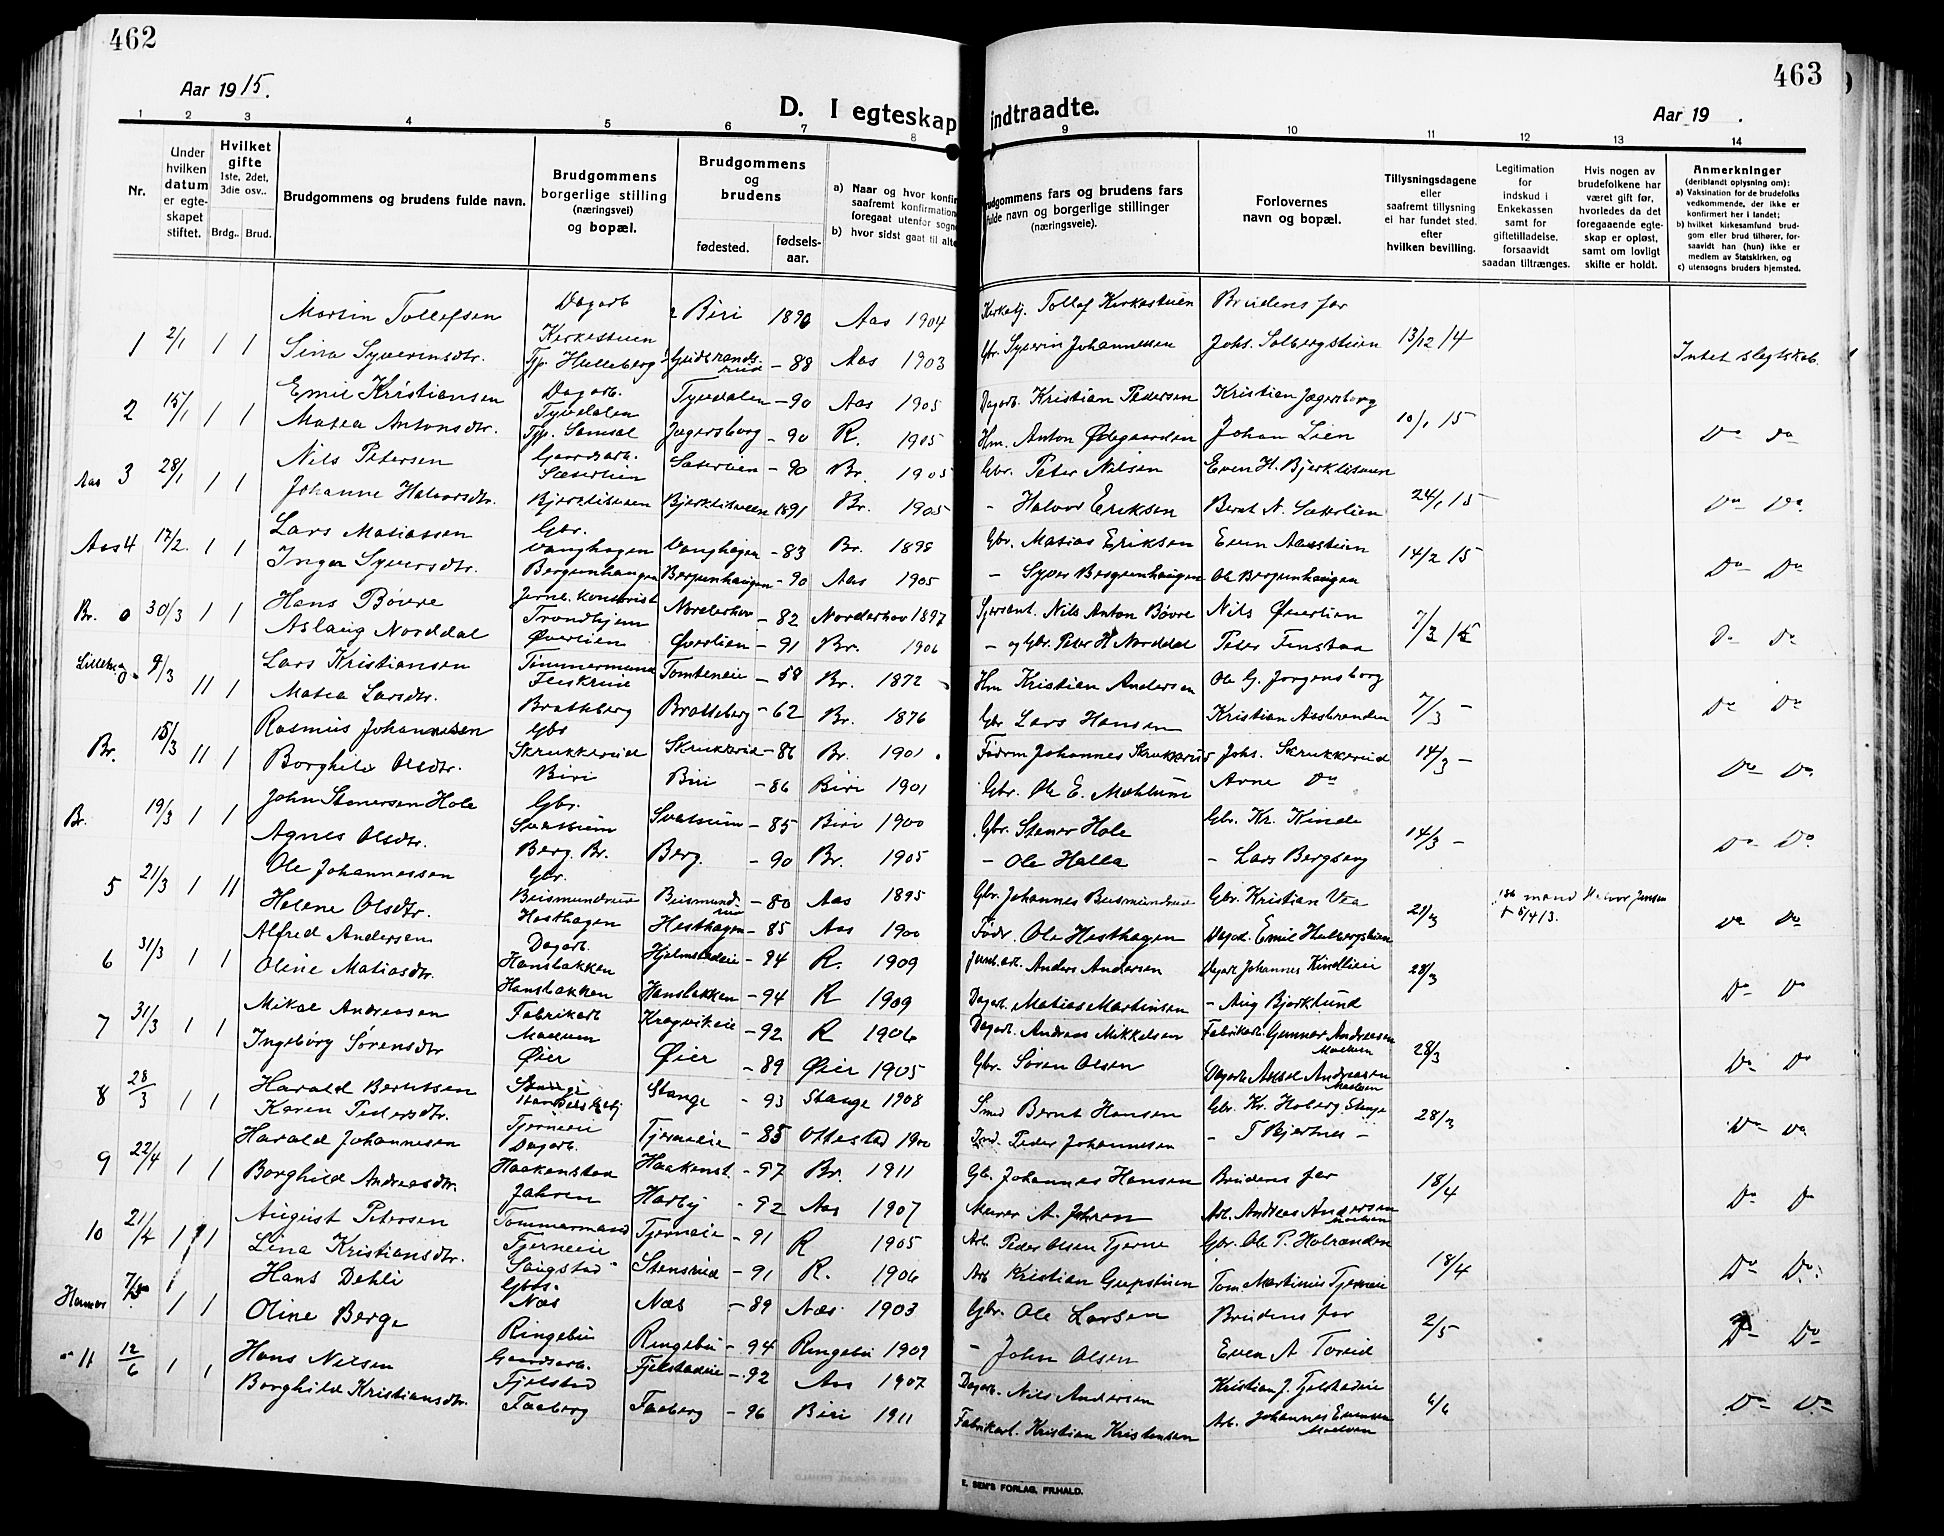 462
463
Aar 1915.
Aar 19 .
D. I egteskap indtraadte.
1 2 3 4 5 6 7 8 9 10 11 12 13 14
Nr.
Under hvilken datum er egteskapet stiftet.
Hvilket gifte 1ste, 2det, 3die osv..
Brdg.. Brud.
Brudgommens og brudens fulde navn.
Brudgommens borgerlige stilling (næringsvei) og bopæl.
Brudgommens og brudens
fødested.
fødselsaar.
a) Naar og hvor konfir
saafremt konfirmation
foregaat utenfor sogn
b) hvor sidst gaat til alte
rudgommens fars og brudens fars
fulde navn og borgerlige stillinger
(næringsveie).
Forlovernes navn og bopæl.
Tillysningsdagene eller saafremt tillysning ei har fundet sted. efter hvilken bevilling.
Legitimation for indskud i Enkekassen samt for giftetilladelse. forsaavidt saadan tiltrænges.
Hvis nogen av brudefolkene har været gift før, hvorledes da det foregaaende egteskap er opløst, samt om lovligt skifte er holdt.
Anmerkninger
(deriblandt oplysning om):
a) Vaksination for de brudefolks vedkommende, der ikke er konfirmert her i landet;
b) hvilket kirkesamfund brudgom eller brud tilhører, forsaavidt han (hun) ikke er medlem av Statskirken, og
c) utensogns bruders hjemsted.
1 2/1 1 1 Martin Tollefsen Dagarb. Kirkestuen Biri 1890 Aas 1904 Tollef Kirkestuen Brudens far 13/12 14
Sina Syverinsdtr. Tjp. Helleberg Gudbrandsrud – 88 Aas 1903 Gbr. Syverin Johannessen Johs. Solbergstuen Intet slegtskab
2 15/1 1 1 Emil Kristiansen Dagarb. Tyvdalen Tyvdalen – 90 Aas 1905 Dagarb. Kristian Pedersen Kristian Jægersborg 10/1 15
Matea Antonsdtr. Tjp. Samsal Jægersborg – 90 R. 1905 Hm. Anton Ødegaarden Johan Lien Do Do
Aas 3 28/1 1 1 Nils Petersen Gaardsarb. Sæterlien Sæterlien – 90 Br. 1905 Gbr. Peter Nilsen Even H. Bjerklisveen 24/1 15
Johanne Halvorsdtr. Bjerklisveen Bjerklisveen 1891 Br. 1905 – Halvor Eriksen Bernt N. Sæterlien Do Do
Aas 4 17/2. 1 1 Lars Matiassen Gbr. Vanghagen Vanghagen – 83 Br. 1898 Gbr. Matias Eriksen Even Aasstuen 14/2 15
Inga Syversdtr. Bergenhaugen Bergenhaugen – 90 Aas 1905 – Syver Bergenhaugen Ole Bergenhaugen Do Do
Br. 0 30/3 1 1 Hans Bøvre Jernb. kontorist Trondhjem Norderhov – 82 Norderhov 1897 Nils Anton Bøvre Nils Øverlien 7/3 15
Aslaug Norddal Øverlien Øverlien – 91 Br. 1906 – og Gbr. Peter H Norddal Peter Finstaa Do Do
0 9/3 11 1 Lars Kristiansen Tømmermand Tomteneie – 58 Br. 1872 Hm Kristian Andersen Ole G. Jørgensborg 7/3 –
Matea Larsdtr. Bratteberg Bratteberg – 62 Br. 1876 Gbr Lars Hansen Kristian Aasbrenden Do Do
Br. 15/3 11 1 Rasmus Johannessen Gbr Skrukkerud Skrukkerud – 86 Br. 1901 Fødrm Johannes Skrukkerud Johs. Skrukkerud 14/3 –
Borghild Olsdtr. Biri Biri – 86 Biri 1901 Gbr. Ole E. Mæhlum Arne Do Do Do
Br. 19/3 1 1 John Stenersen Hole Gbr. Svatsum Svatsum – 85 Biri 1900 Gbr. Stener Hole Gbr. Kr. Kinde 14/3 –
Agnes Olsdtr. Berg. Br. Berg. – 90 Br. 1905 – Ole Halla – Lars Bergseng Do Do
5 21/3 1 11 Ole Johannessen Gbr. Beismundrud Beismundrud – 80 Aas 1895 Gbr. Johannes Beismundrud Gbr. Kristian Vea 21/3 mand Halvor Jensen + 5/4 13.
Helene Olsdtr. Hesthagen Hesthagen – 85 Aas 1900 Fødr. Ole Hesthagen Dagarb. Emil Do Do
6 31/3 1 1 Alfred Andersen Dagarb. Hansbakken Hjelmstadeie – 94 R. 1909 Anders Andersen Dagarb Johannes Kindlieie 28/3
Oline Matiasdtr. Hansbakken Hansbakken – 94 R 1909 Dagarb. Matias Martinsen – Aug Bjørklund Do Do
7 31/3 1 1 Mikal Andreasen Fabrikarb Moelven Kragvikeie – 92 R 1906 Dagarb. Andreas Mikkelsen Fabrikarb. Gunnar Andreasen Moelven 28/3
Ingeborg Sørensdtr Øier Øier – 89 Øier 1905 Gbr. Søren Olsen Dagarb. Aksel Andreasen Moelven Do Do
8 28/3 1 1 Harald Berntsen Stange Stange – 93 Stange 1908 Smed Bernt Hansen Gbr. Kr. Hoberg Stange 28/3
Karen Pedersdtr. Tjerneie Tjerneie – 85 Ottestad 1900 Peder Johannesen – T Bjertnes – Do Do
9 22/4 1 1 Harald Johannesen Dagarb. Haakenstad Haakenst. – 97 Br. 1911 Gb. Johannes Hansen Brudens far 18/4
Borghild Andreasdtr. Jahren Harby – 92 Aas 1907 Murer A. Jahren Arb. Andreas Andersen Moelven Do Do
10 21/4 1 1 August Petersen Tømmermand Tjerneeie Tjerneie – 91 R 1905 Arb. Peder Olsen Tjerne Gbr. Ole P. Holrænden 18/4
Lina Kristiansdtr. Saugstad Stensrud – 91 R. 1906 Arb Kristian Gupstuen Tom. Martinius Tjerneie Do Do
Hamar 7/5 1 1 Hans Dehli Gbbs. Næs Næs – 89 Næs 1903 Gbr. Ole Larsen Brudens far 2/5
Oline Berge Ringebu Ringebu – 94 Ringebu 1909 – John Olsen Even A Torud Do Do
11 12/6 1 1 Hans Nilsen Gaardsarb. Fjelstad Fjelstadeie – 92 Aas 1907 Dagarb. Nils Andersen Kristian J. Fjelstadeie 6/6
Borghild Kristiansdtr. Faaberg Faaberg – 96 Biri 1911 Fabrikarb. Kristian Kristensen Arb. Johannes Evensen Moelven Do Do
E. SEM'S FORLAG, FR.HALD.